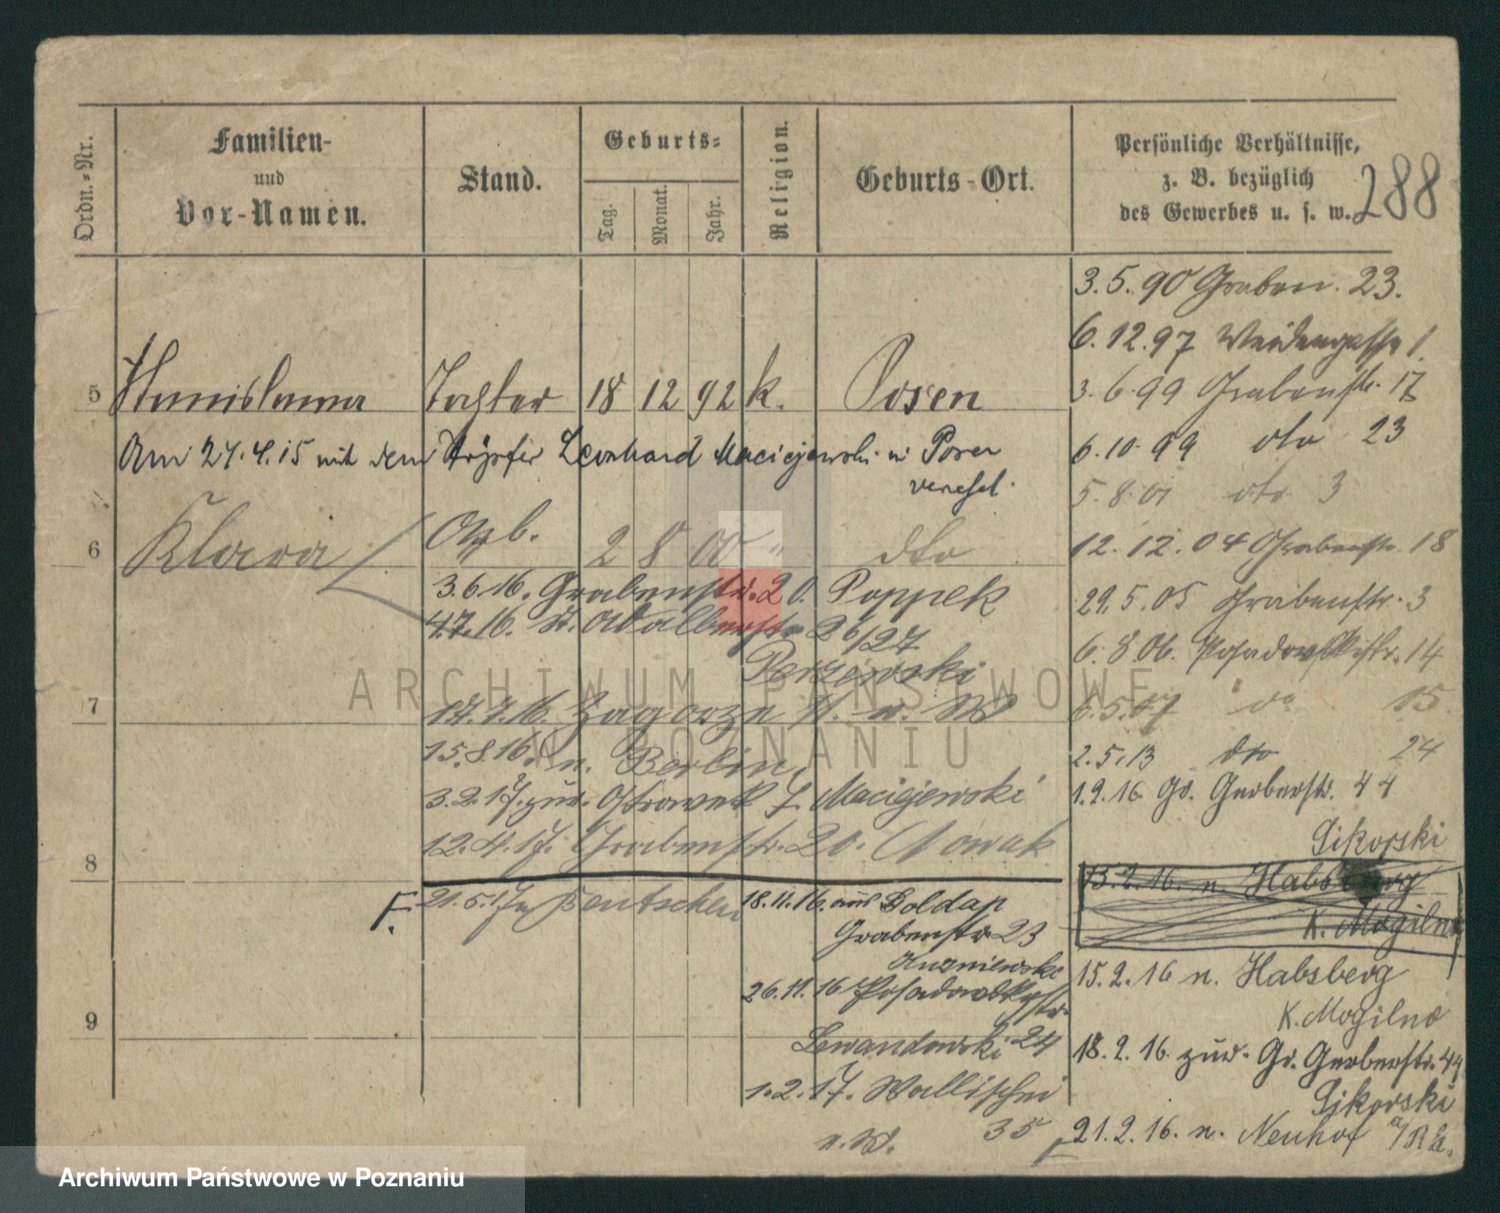 Ordn.-Nr.
Familien-
und
Vor-Namen.
Stand.
Geburts-
Tag.
Monat.
Jahr.
Religion.
Geburts-Ort.
Persönliche Verhältnisse,
z. B. bezüglich
des Gewerbes u. s. w.
288
5 Stanislawa Tochter 18 12 92 k. Posen
Am 27.4.15 mit dem Töpfer Leonhard Maciejewski in Posen
verehel.
6 Klara 2 8 00 dto
3.6.16. Grabenstr. 20. Poppek
4.7.16. St. Adalbertstr. 26/27
17.7.16. Zagorze
15.8.16. n. Berlin
3.2.17. zur. Ostrowek 7. Maciejewski
12.4.17. Grabenstr. 20. Nowak
7
8
9
F. 21.5.17 Bentschen
18.11.16. aus Goldap
Grabenstr. 23
26.11.16 Posadowskystr.
Lewandowski 24
1.2.17. Wallischei
35
n. W.
3.5.90 Graben. 23.
6.12.97 Weidengasse 1.
3.6.99 Grabenstr. 17
6.10.99 dto 23
5.8.01 dto 3
12.12.04 Grabenstr. 18
29.5.05 Grabenstr. 3
6.8.06. Posadowskystr. 14
do 15
2.5.13 dto 24
1.2.16 Gr. Gerberstr. 44
Sikorski
15.2.16. n. Habsberg
K. Mogilno
15.2.16 n. Habsberg
K. Mogilno
18.2.16. zur. Gr. Gerberstr. 44
Sikorski
21.2.16. n. Neuhof
ARCHIWUM PAŃSTWOWE
W POZNANIU
Archiwum Państwowe w Poznaniu